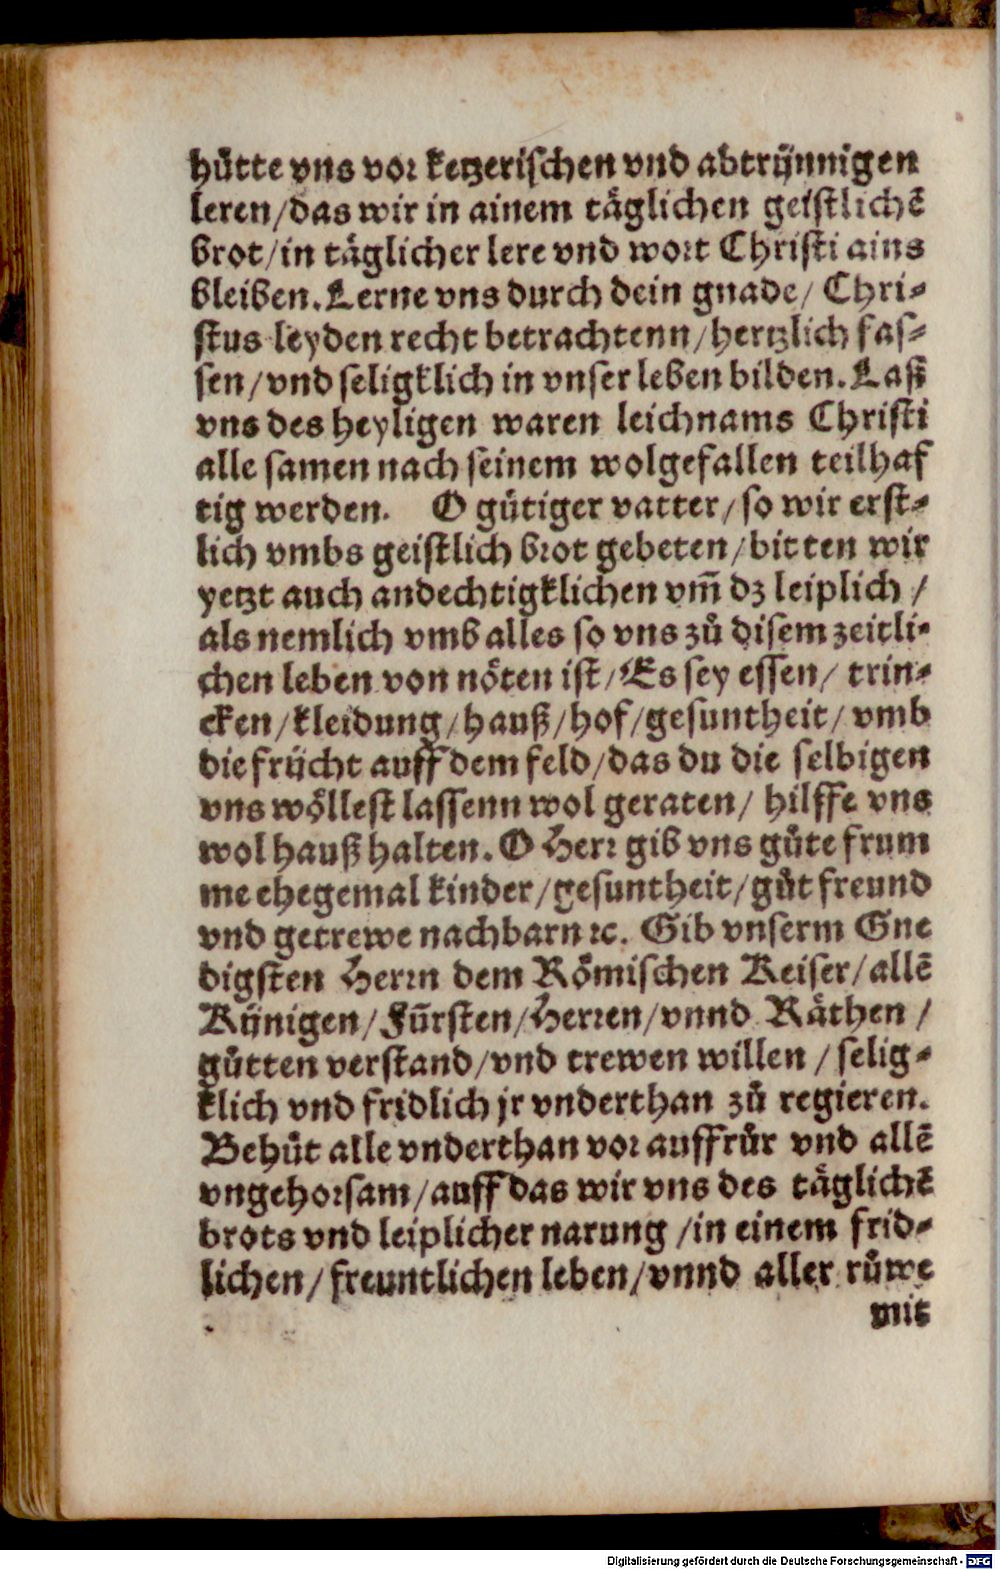 hůtte vns vor ketzerischen vnd abtrÿnnigen
leren/das wir in ainem täglichen geistlichē
brot/in täglicher lere vnd wort Christi ains
bleiben. Lerne vns durch dein gnade/ Chri⸗
stus leyden recht betrachtenn/hertzlich fas⸗
sen/vnd seligklich in vnser leben bilden. Laß
vns des heyligen waren leichnams Christi
alle samen nach seinem wolgefallen teilhaf
tig werden. O gütiger vatter/so wir erst⸗
lich vmbs geistlich brot gebeten/bitten wir
yetzt auch andechtigklichen vm̄ dz leiplich /
als nemlich vmb alles so vns zů disem zeitli⸗
chen leben von nöten ist/Es sey essen/ trin⸗
cken/kleidung/hauß/hof/gesuntheit/ vmb
die frücht auff dem feld/das du die selbigen
vns wöllest lassenn wol geraten/ hilffe vns
wol hauß halten. O Herr gib vns gůte frum
me ehegemal kinder/gesuntheit/gůt freund
vnd getrewe nachbarn ꝛc. Gib vnserm Gne
digsten Herrn dem Römischen Keiser/allē
Kÿnigen/Fürsten/Herren/vnnd Räthen /
gůtten verstand/vnd trewen willen /selig⸗
klich vnd fridlich jr vnderthan zů regieren.
Behůt alle vnderthan vor auffrůr vnd allē
vngehorsam/auff das wir vns des täglichē
brots vnd leiplicher narung /in einem frid⸗
lichen/freuntlichen leben/vnnd aller růwe
mit
Digitalisierung gefördert durch die Deutsche Forschungsgemeinschaft - DFG